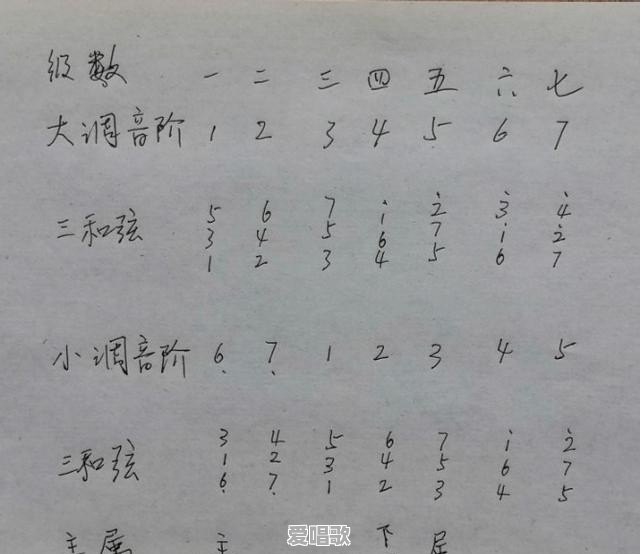 级数 一 二 三 四 五 六 七
大调音阶 1 2 3 4 5 6 7
5 6 7 i 2̇ 3̇ 4̇
三和弦 3 4 5 6 7 i 2̇
1 2 3 4 5 6 7
小调音阶 6̣ 7̣ 1 2 3 4 5
3 4 5 6 7 i 2̇
三和弦 1 2 3 4 5 6 7
6̣ 7̣ 1 2 3 4 5
主属 主 下 属
爱唱歌